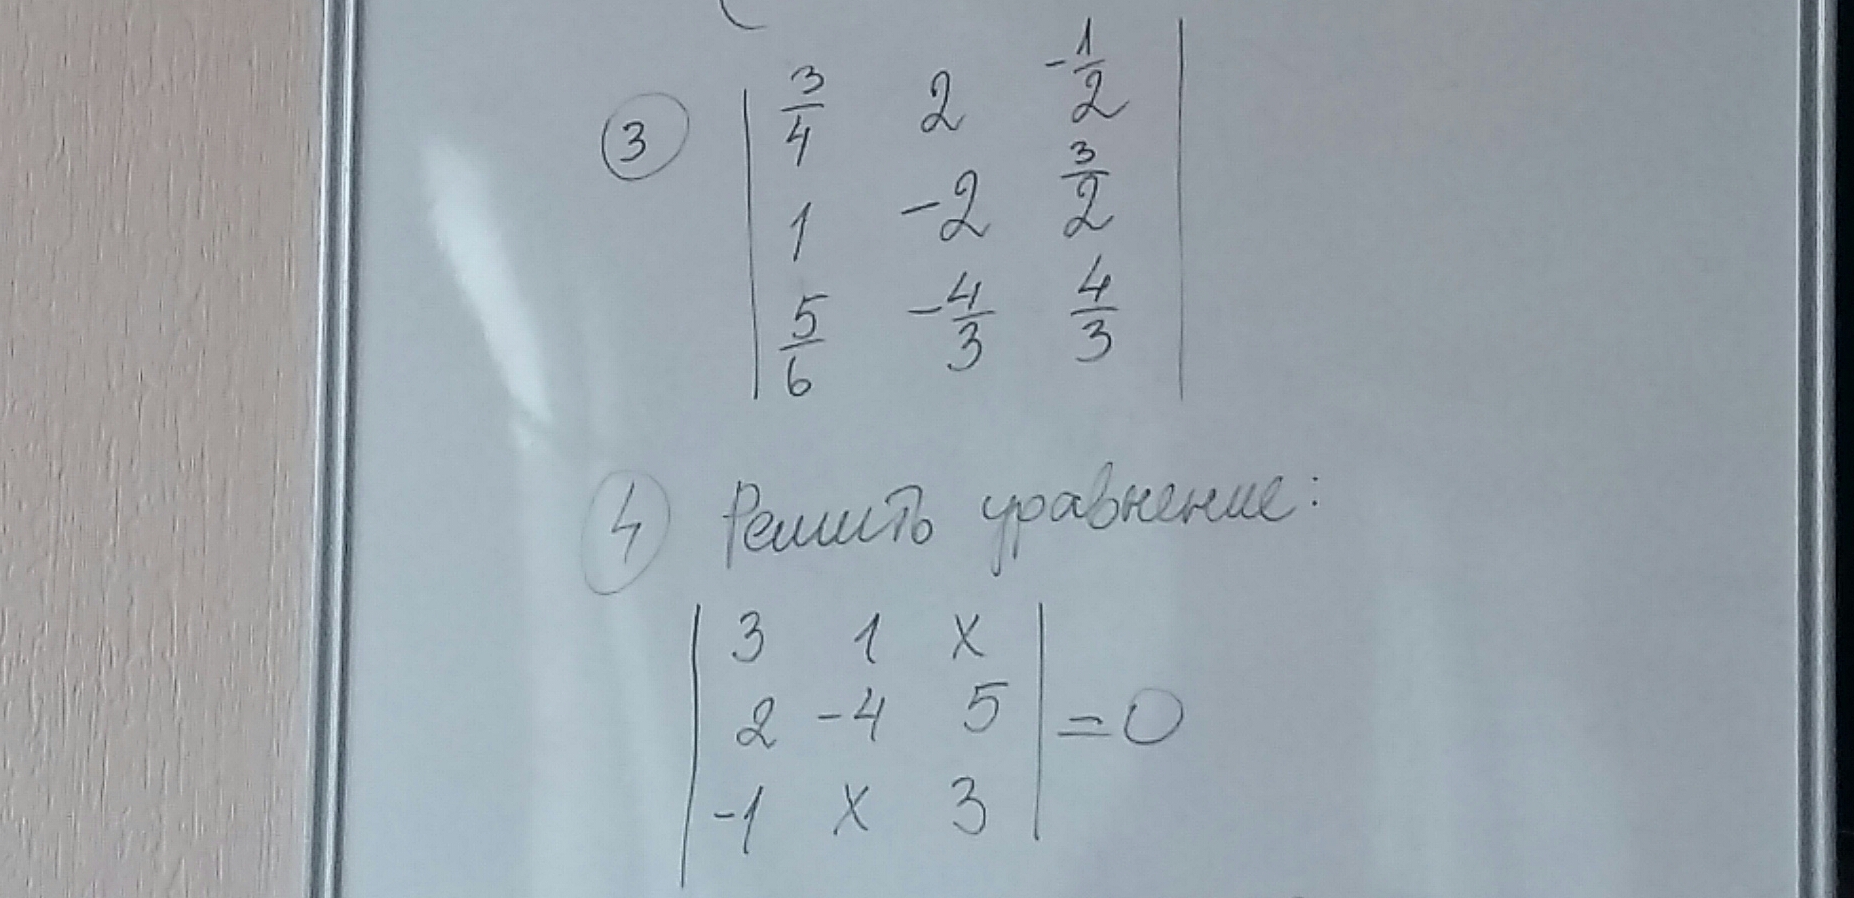 ③ | 3/4 2 -1/2 |
| 1 -2 3/2 |
| 5/6 -4/3 4/3 |
④ Решить уравнение:
| 3 1 x |
| 2 -4 5 | = 0
| -1 x 3 |